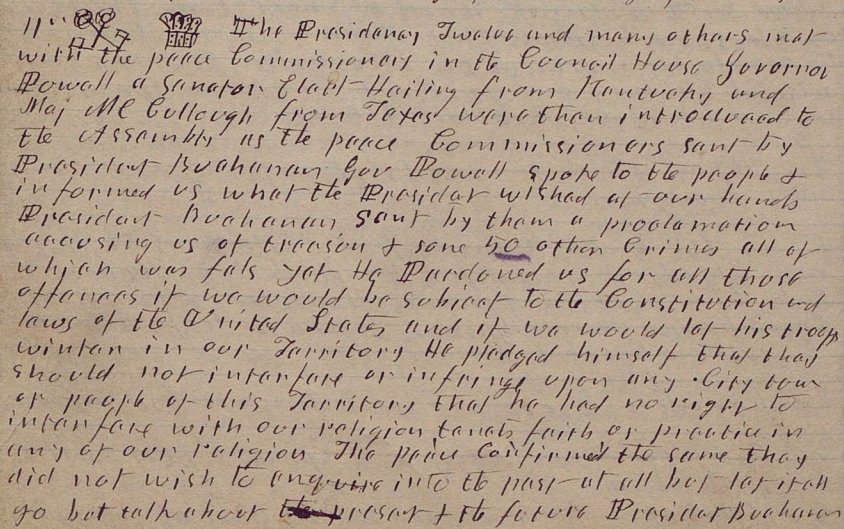 11th The Presidency Twelve and many others met
with the peace Commissioners in the Council House Governor
Powell a Senator Elect Hailing from Kentucky and
Maj McCullough from Texas were then introduced to
the Assembly as the peace Commissioners sent by
President Buchanan Gov Powell spoke to the people &
informed us what the Presidet wished at our hands
President Buchanan sent by them a proclamation
accusing us of treason & some 50 other Crimes all of
which was fals yet He Pardoned us for all those
offences if we would be subject to the Constitution and
laws of the United States and if we would let his troops
winter in our Territory He pledged himself that they
should not interfere or infringe upon any City town
or people of this Territory that he had no right to
interfere with our religion tenets faith or practice in
any of our religion The peace Confirmed the same they
did not wish to enquire into the past at all but let it all
go but talk about the present & the future Presidet Buchanan